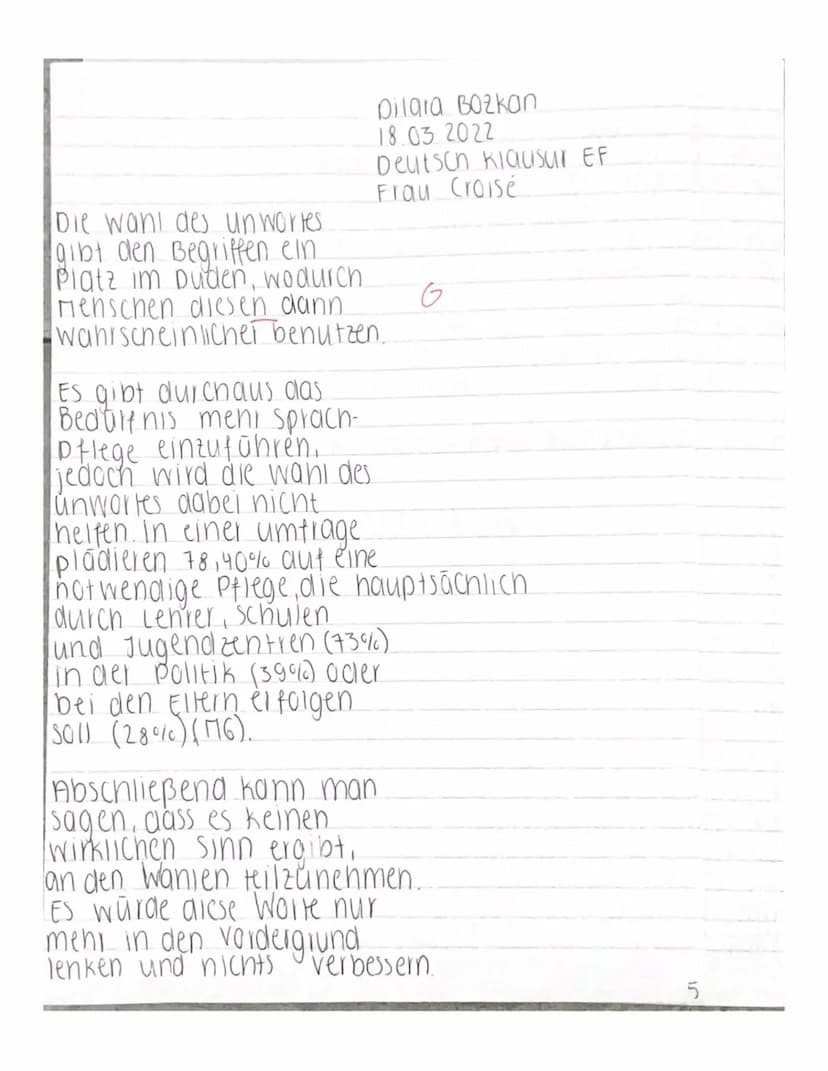 Dilara Bozkan
18.03.2022
Deutsch Klausur EF
Frau Croisé
Die Wahl des Unwortes
gibt den Begriffen ein
Platz im Duden, wodurch
Menschen diesen dann
G
wahrscheinlicher benutzen.
Es gibt durchaus das
Bedürfnis mehr Sprach-
pflege einzuführen,
jedoch wird die Wahl des
Unwortes dabei nicht
helfen. In einer Umfrage
plädieren 78,40% auf eine
notwendige Pflege, die hauptsächlich
durch Lehrer, Schulen
und Jugendzentren (73%)
in der Politik (39%) oder
bei den Eltern erfolgen
soll (28%) (M6).
Abschließend kann man
sagen, dass es keinen
wirklichen Sinn ergibt,
an den Wahlen teilzunehmen.
Es würde diese Worte nur
mehr in den Vordergrund
lenken und nichts verbessern.
5